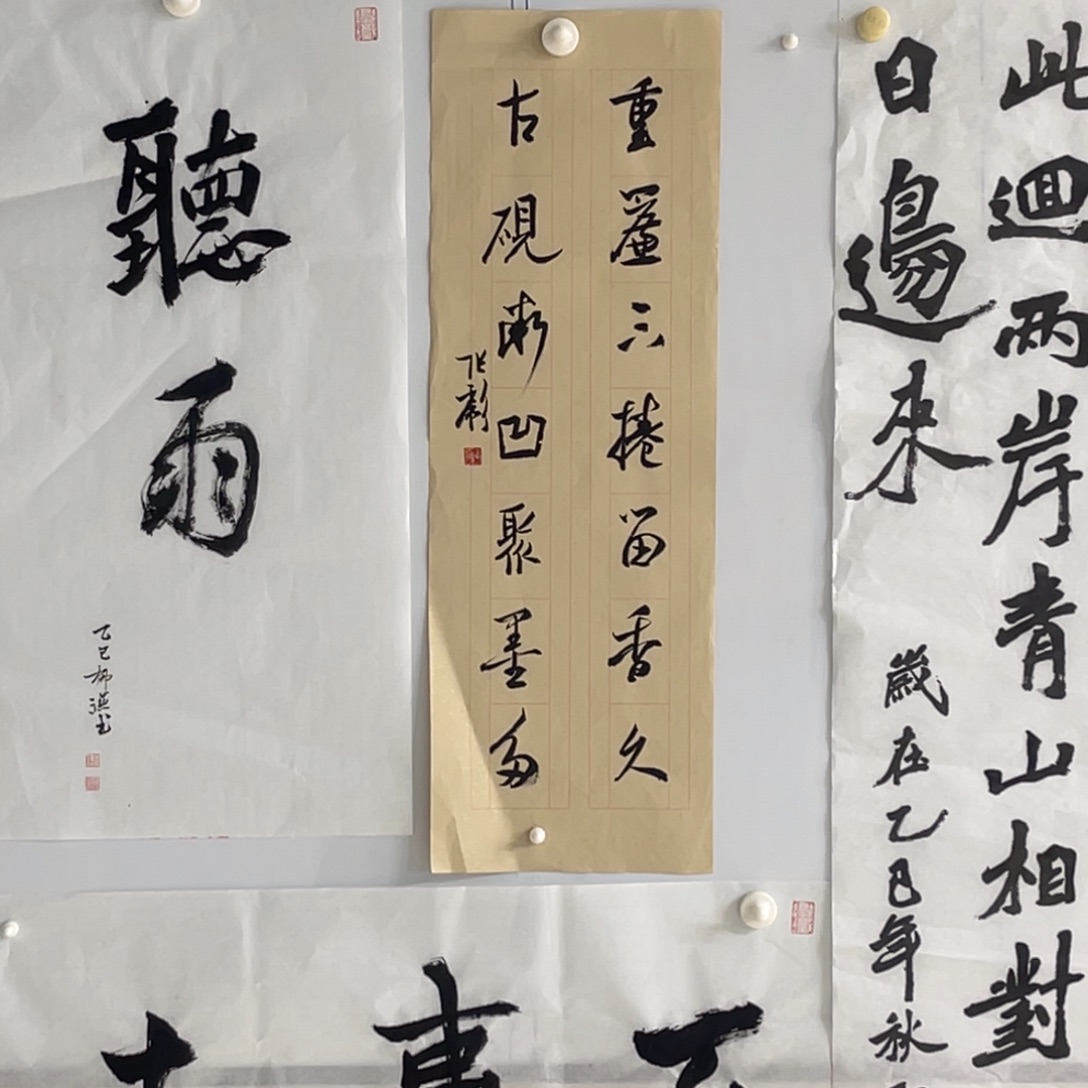 此迴两岸青山相對
日邊來
歲在乙巳年秋
重簾不捲留香久
古硯微凹聚墨多
聽雨
乙巳柳书